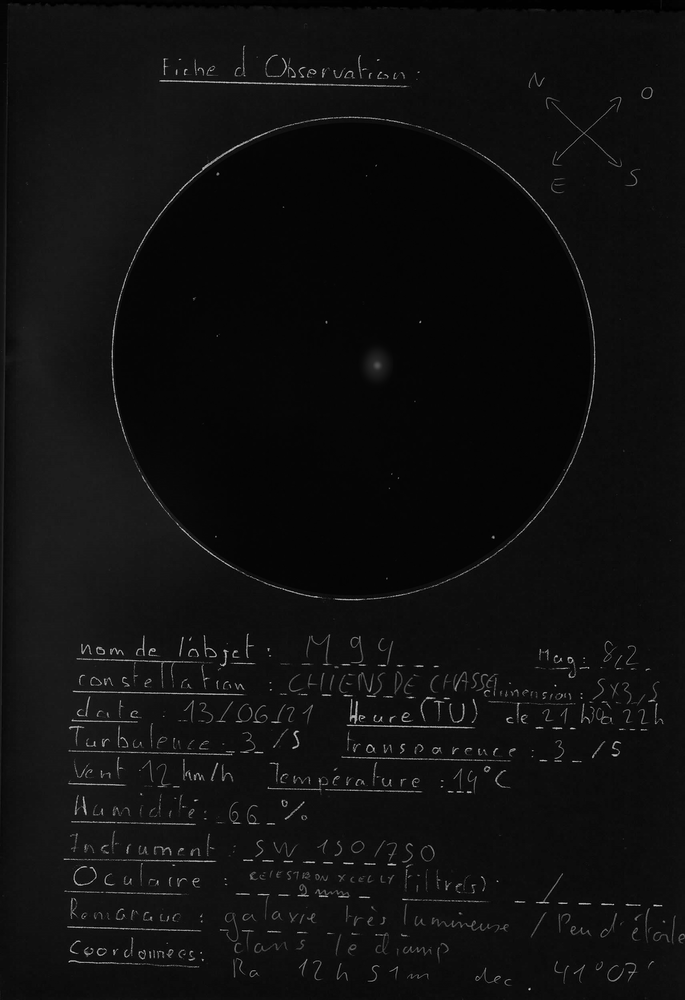 Fiche d'Observation :
N O
E S
nom de l'objet : M 94 Mag : 8,2
constellation : CHIENS DE CHASSE dimension : 5x3,5
date : 13/06/21 Heure (TU) de 21 h à 22h
Turbulence : 3 /5 transparence : 3 /5
Vent 12 km/h Température : 19°C
Humidité : 66 %
Instrument : SW 150/750
Oculaire : CELESTRON X CEL LX Filtre(s) : /
9 mm
Remarque : galaxie très lumineuse / Peu d'étoile
dans le champ
Coordonnées :
Ra 12h 51m dec. 41°07'